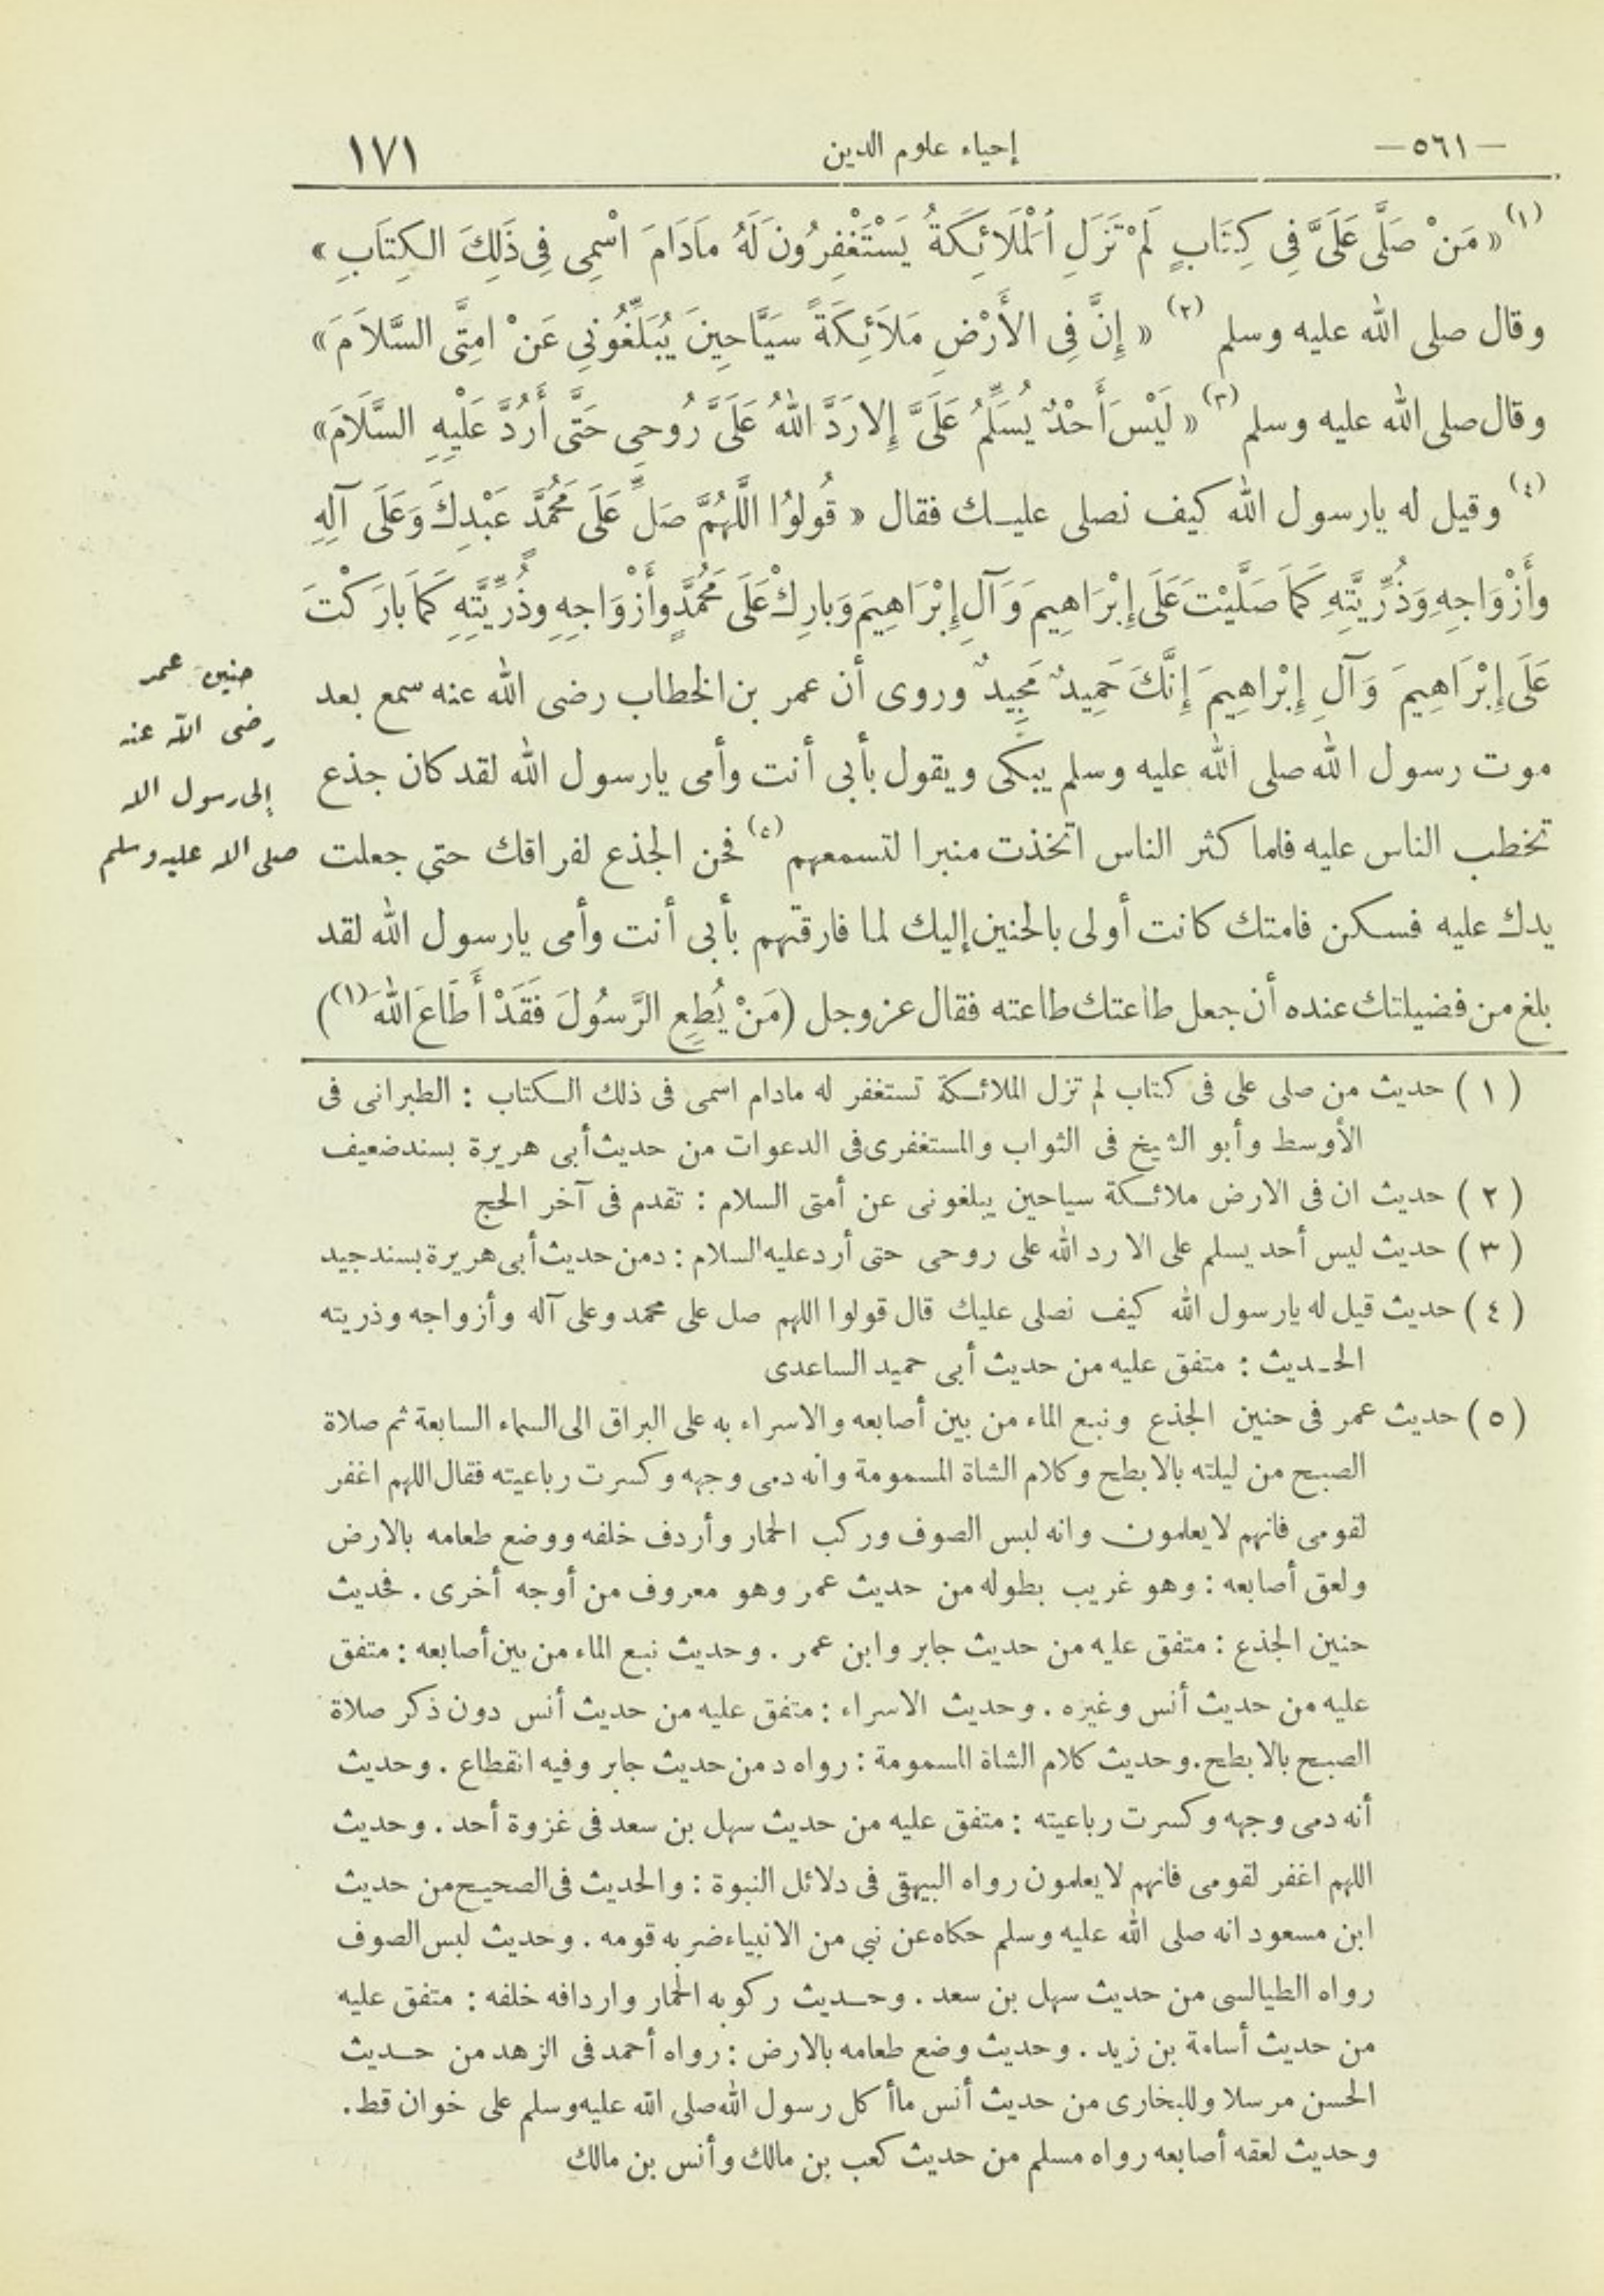 — ٥٦١ —
إحياء علوم الدين
١٧١
(١) « مَنْ صَلَّى عَلَىَّ فِى كِتَابٍ لَمْ تَزَلِ اَلْمَلَائِكَةُ يَسْتَغْفِرُونَ لَهُ مَادَامَ اسْمِى فِى ذَلِكَ الكِتَابِ »
وقال صلى الله عليه وسلم (٢) « إِنَّ فِى الأَرْضِ مَلَائِكَةً سَيَّاحِينَ يُبَلِّغُونِى عَنْ امِتَّى السَّلاَمَ »
وقال صلى الله عليه وسلم (٣) « لَيْسَ أَحْدٌ يُسَلِّمُ عَلَىَّ إِلا رَدَّ اللهُ عَلَىَّ رُوحِى حَتَّى أَرُدَّ عَلَيْهِ السَّلَامَ »
(٤) وقيل له يارسول الله كيف نصلى عليك فقال « قُولوُا اللَّهُمَّ صَلِّ عَلَى مُحَمَّدٍ عَبْدِكَ وَعَلَى آلِهِ
وأَزْوَاجِهِ وَذُرِّيَّتِهِ كَمَا صَلَّيْتَ عَلَى إِبْرَاهِيمَ وَآلِ إِبْرَاهِيمَ وَبارِكْ عَلَى مُحَمَّدٍ وأَزْوَاجِهِ وذُرِّيَّتِهِ كَمَا بارَكْتَ
عَلَى إِبْرَاهِيمَ وَآلِ إِبْرَاهِيمَ إِنَّكَ حَمِيدٌ مَجِيدٌ وروى أن عمر بن الخطاب رضى الله عنه سمع بعد
موت رسول الله صلى الله عليه وسلم يبكى ويقول بأبى أنت وأمى يارسول الله لقد كان جذع
تخطب الناس عليه فلما كثر الناس اتخذت منبرا لتسمعهم (٥) فحن الجذع لفراقك حتى جعلت
يدك عليه فسكن فامتك كانت أولى بالحنين إليك لما فارقتهم بأبى أنت وأمى يارسول الله لقد
بلغ من فضيلتك عنده أن جعل طاعتك طاعته فقال عز وجل (مَنْ يُطِعِ الرَّسُولَ فَقَدْ أَطَاعَ اللهَ (١))
حنين عمر
رضى الله عنه
إلى رسول الله
صلى الله عليه وسلم
(١) حديث من صلى على فى كتاب لم تزل الملائكة تستغفر له مادام اسمى فى ذلك الكتاب : الطبرانى فى
الأوسط وأبو الشيخ فى الثواب والمستغفرى فى الدعوات من حديث أبى هريرة بسند ضعيف
(٢) حديث ان فى الارض ملائكة سياحين يبلغونى عن أمتى السلام : تقدم فى آخر الحج
(٣) حديث ليس أحد يسلم على الا رد الله على روحى حتى أرد عليه السلام : د من حديث أبى هريرة بسند جيد
(٤) حديث قيل له يارسول الله كيف نصلى عليك قال قولوا اللهم صل على محمد وعلى آله وأزواجه وذريته
الحديث : متفق عليه من حديث أبى حميد الساعدى
(٥) حديث عمر فى حنين الجذع ونبع الماء من بين أصابعه والاسراء به على البراق الى السماء السابعة ثم صلاة
الصبح من ليلته بالابطح وكلام الشاة المسمومة وانه دمى وجهه وكسرت رباعيته فقال اللهم اغفر
لقومى فانهم لايعلمون وانه لبس الصوف وركب الحمار وأردف خلفه ووضع طعامه بالارض
ولعق أصابعه : وهو غريب بطوله من حديث عمر وهو معروف من أوجه أخرى . فحديث
حنين الجذع : متفق عليه من حديث جابر وابن عمر . وحديث نبع الماء من بين أصابعه : متفق
عليه من حديث أنس وغيره . وحديث الاسراء : متفق عليه من حديث أنس دون ذكر صلاة
الصبح بالابطح . وحديث كلام الشاة المسمومة : رواه د من حديث جابر وفيه انقطاع . وحديث
أنه دمى وجهه وكسرت رباعيته : متفق عليه من حديث سهل بن سعد فى غزوة أحد . وحديث
اللهم اغفر لقومى فانهم لايعلمون رواه البيهقى فى دلائل النبوة : والحديث فى الصحيح من حديث
ابن مسعود انه صلى الله عليه وسلم حكاه عن نبي من الانبياء ضربه قومه . وحديث لبس الصوف
رواه الطيالسى من حديث سهل بن سعد . وحديث ركوبه الحمار واردافه خلفه : متفق عليه
من حديث أسامة بن زيد . وحديث وضع طعامه بالارض : رواه أحمد فى الزهد من حديث
الحسن مرسلا وللبخارى من حديث أنس ماأ كل رسول الله صلى الله عليه وسلم على خوان قط .
وحديث لعقه أصابعه رواه مسلم من حديث كعب بن مالك وأنس بن مالك